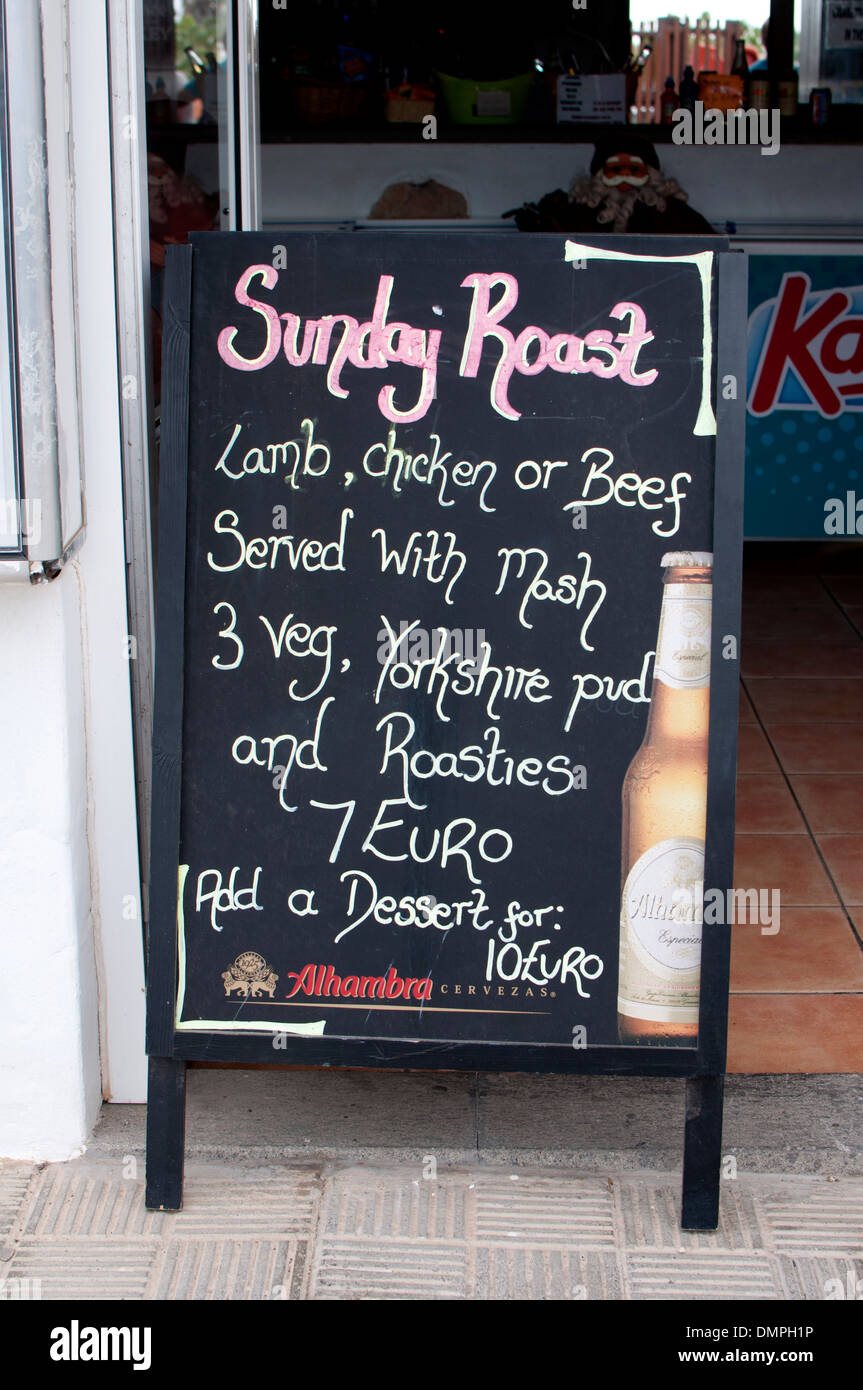 Sunday Roast
Lamb, chicken or Beef
Served With Mash
3 Veg, Yorkshire pud
and Roasties
7 Euro
Add a Dessert for:
10 Euro
Alhambra CERVEZAS
Especial
Alhambra
Especial
Ka
alamy
a
alamy stock photo
DMPH1P
www.alamy.com